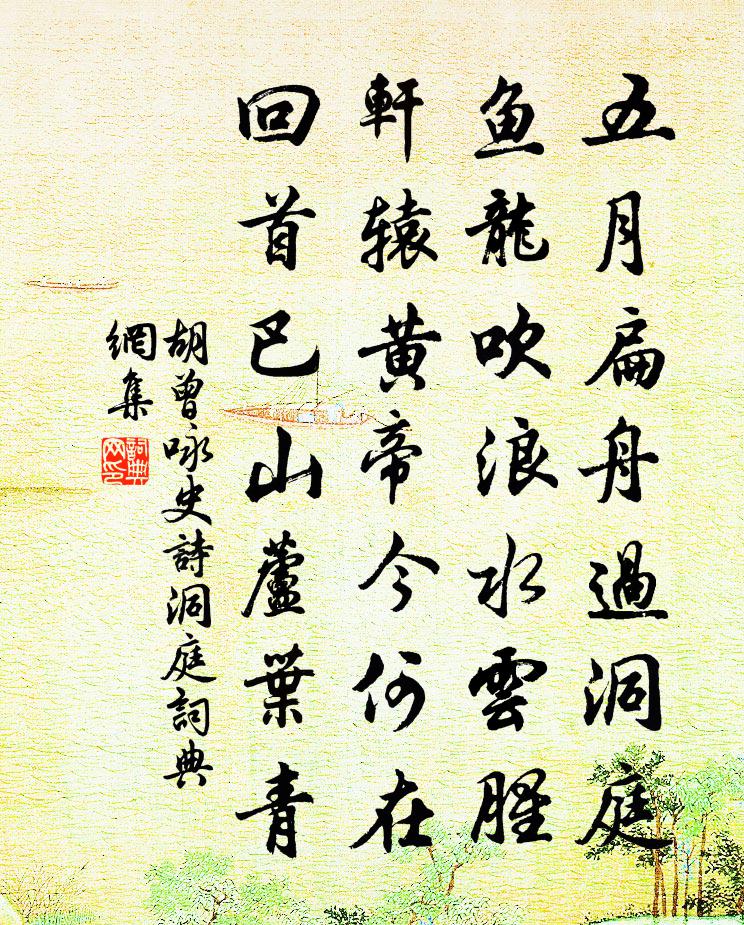 五月扁舟過洞庭
鱼龍吹浪水雲腥
軒辕黄帝今何在
回首巴山蘆葉青
胡曾咏史詩洞庭詞典
網集
詞典
网印